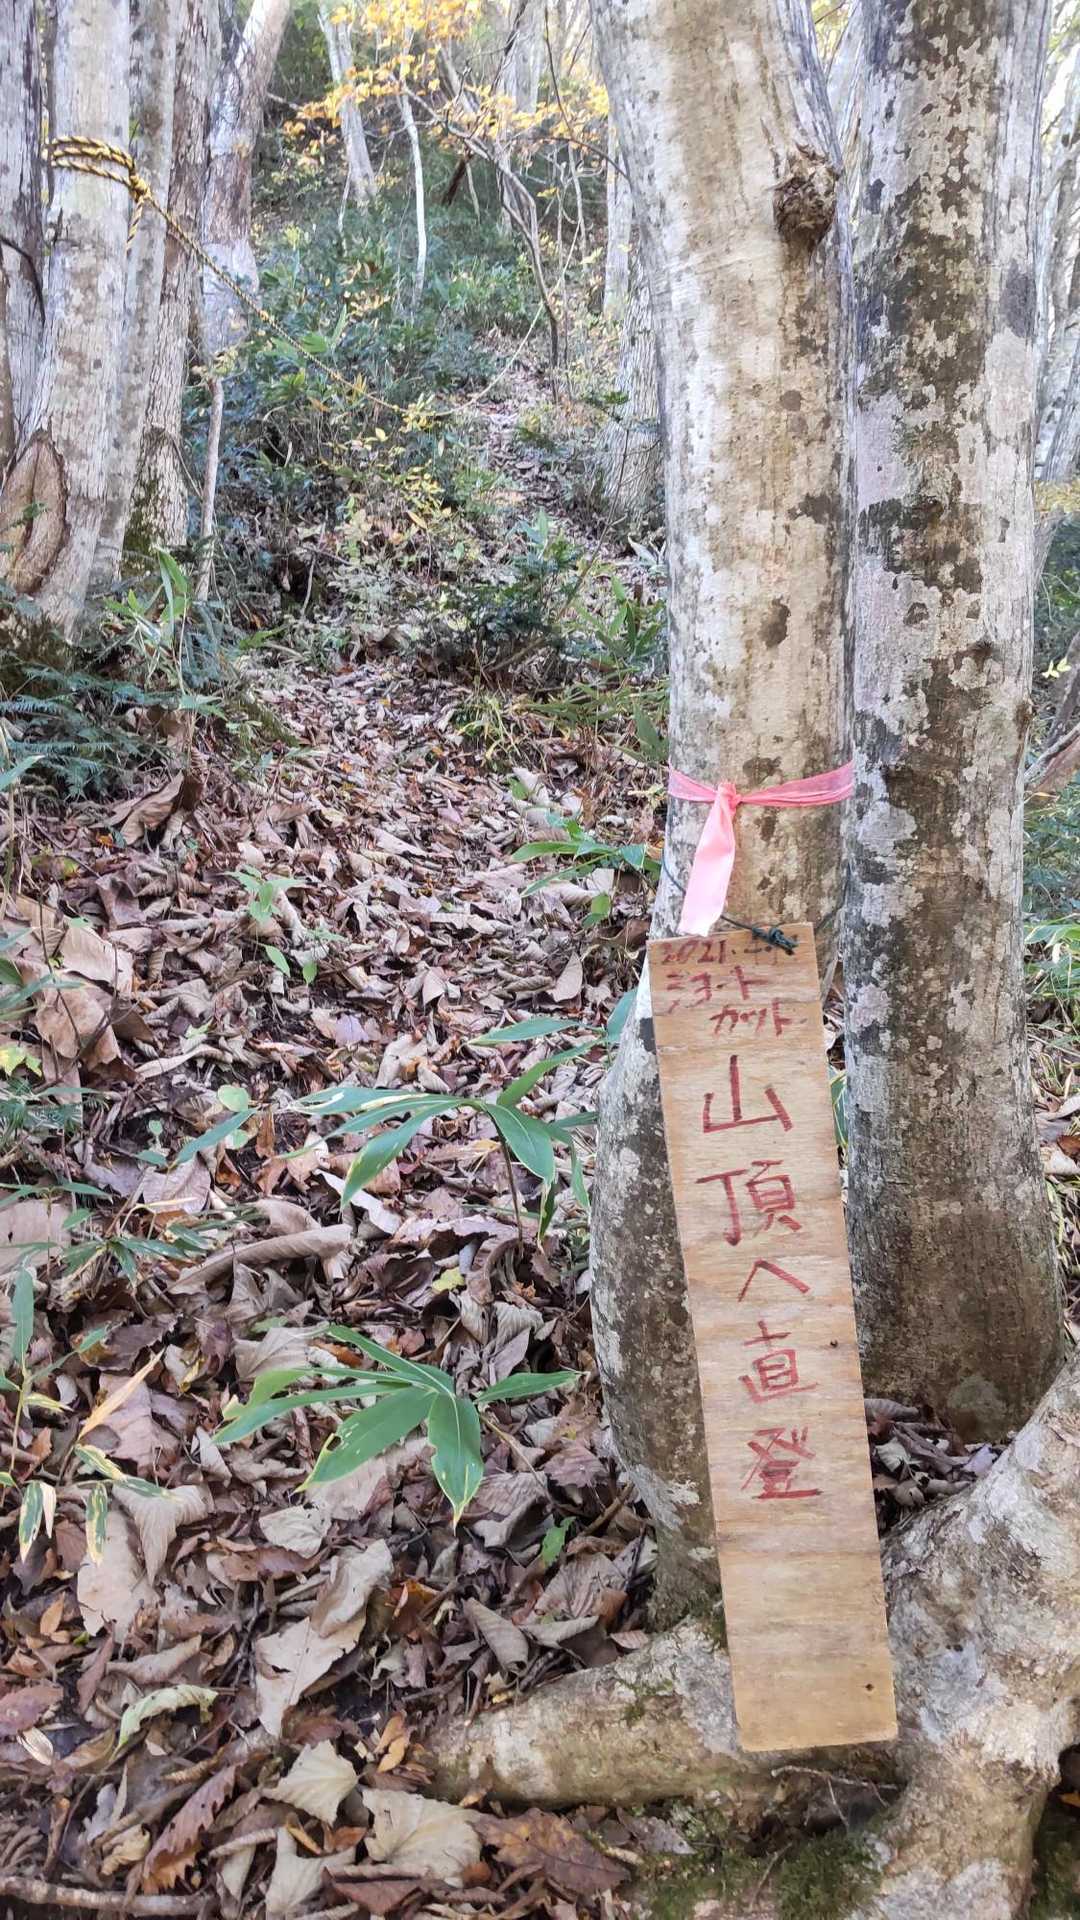 2021.
ショート
カット
山頂へ直登